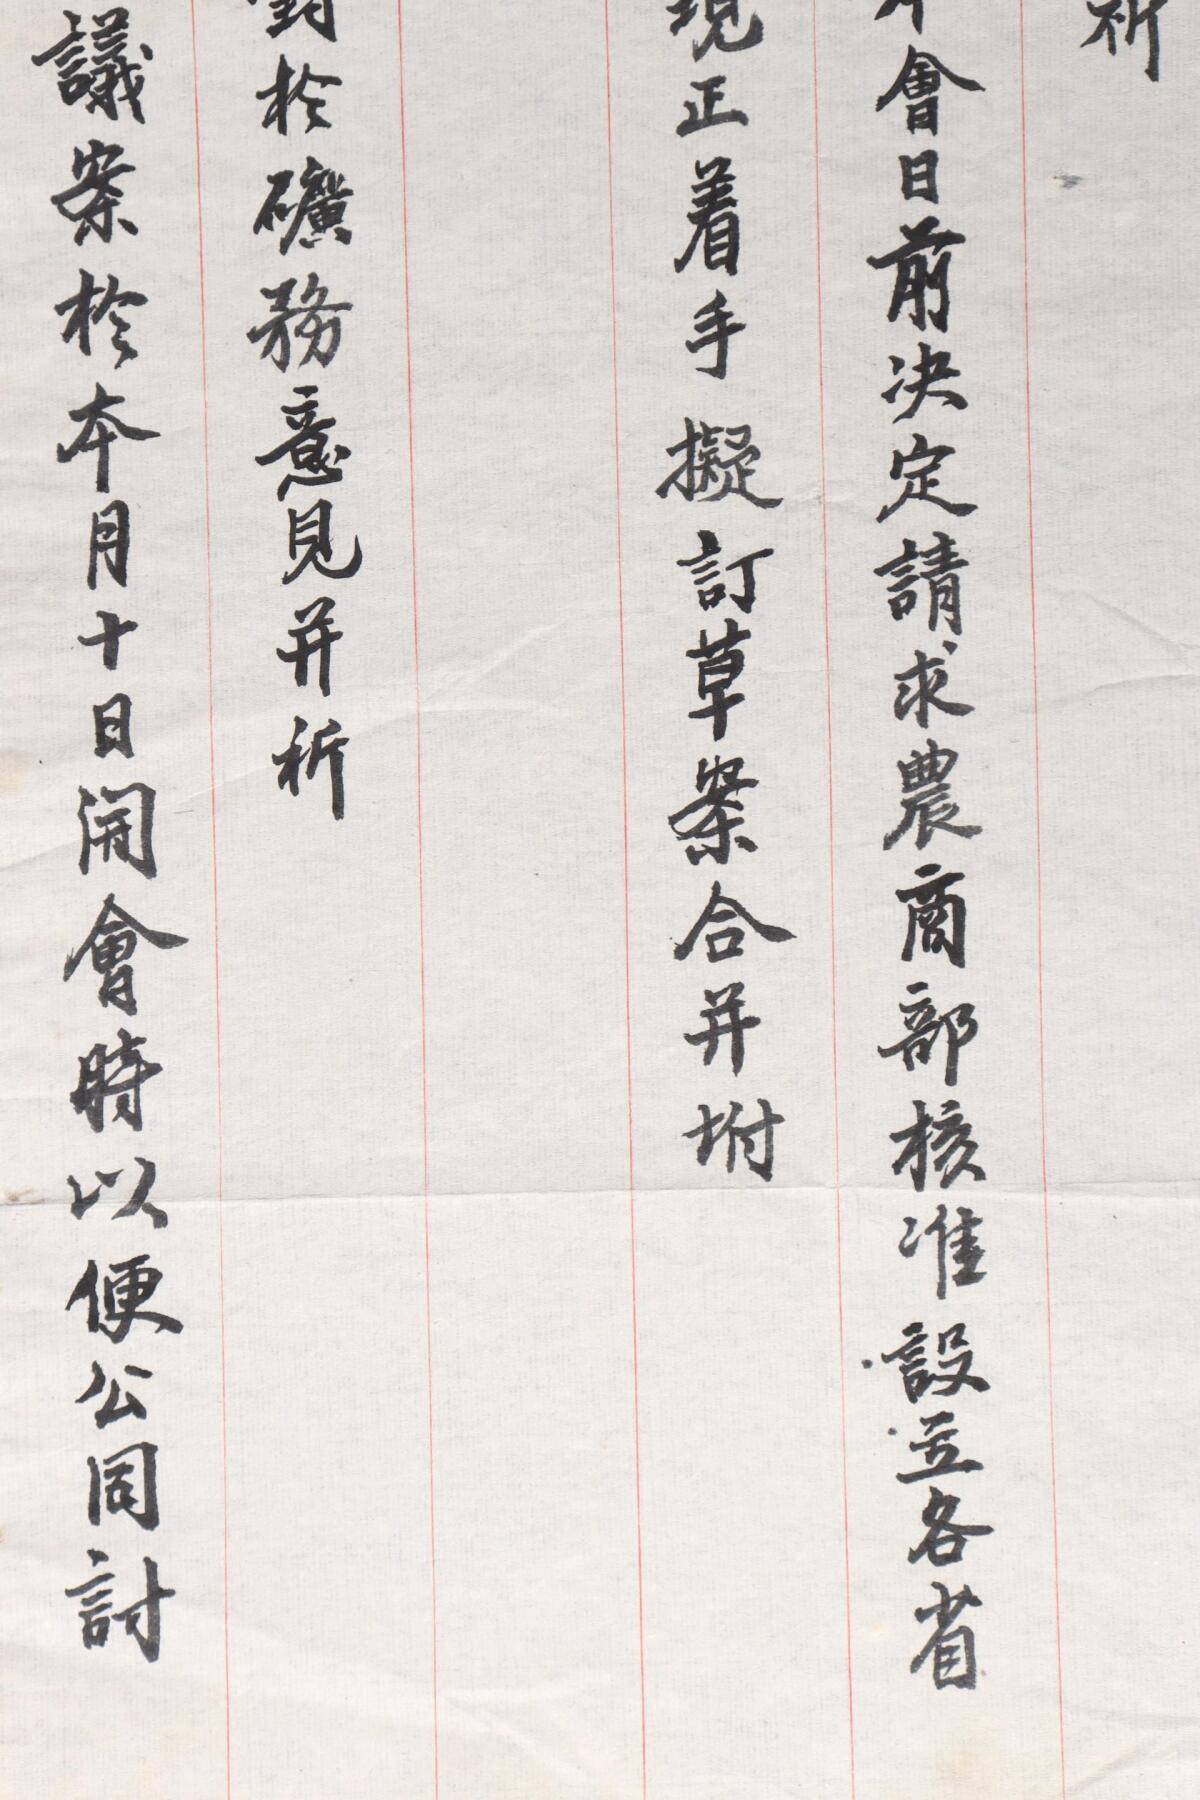 祈
會日前决定請求農商部核准設立各省
現正着手擬訂草案合并坿
對於礦務意見并祈
議案於本月十日開會時以便公同討